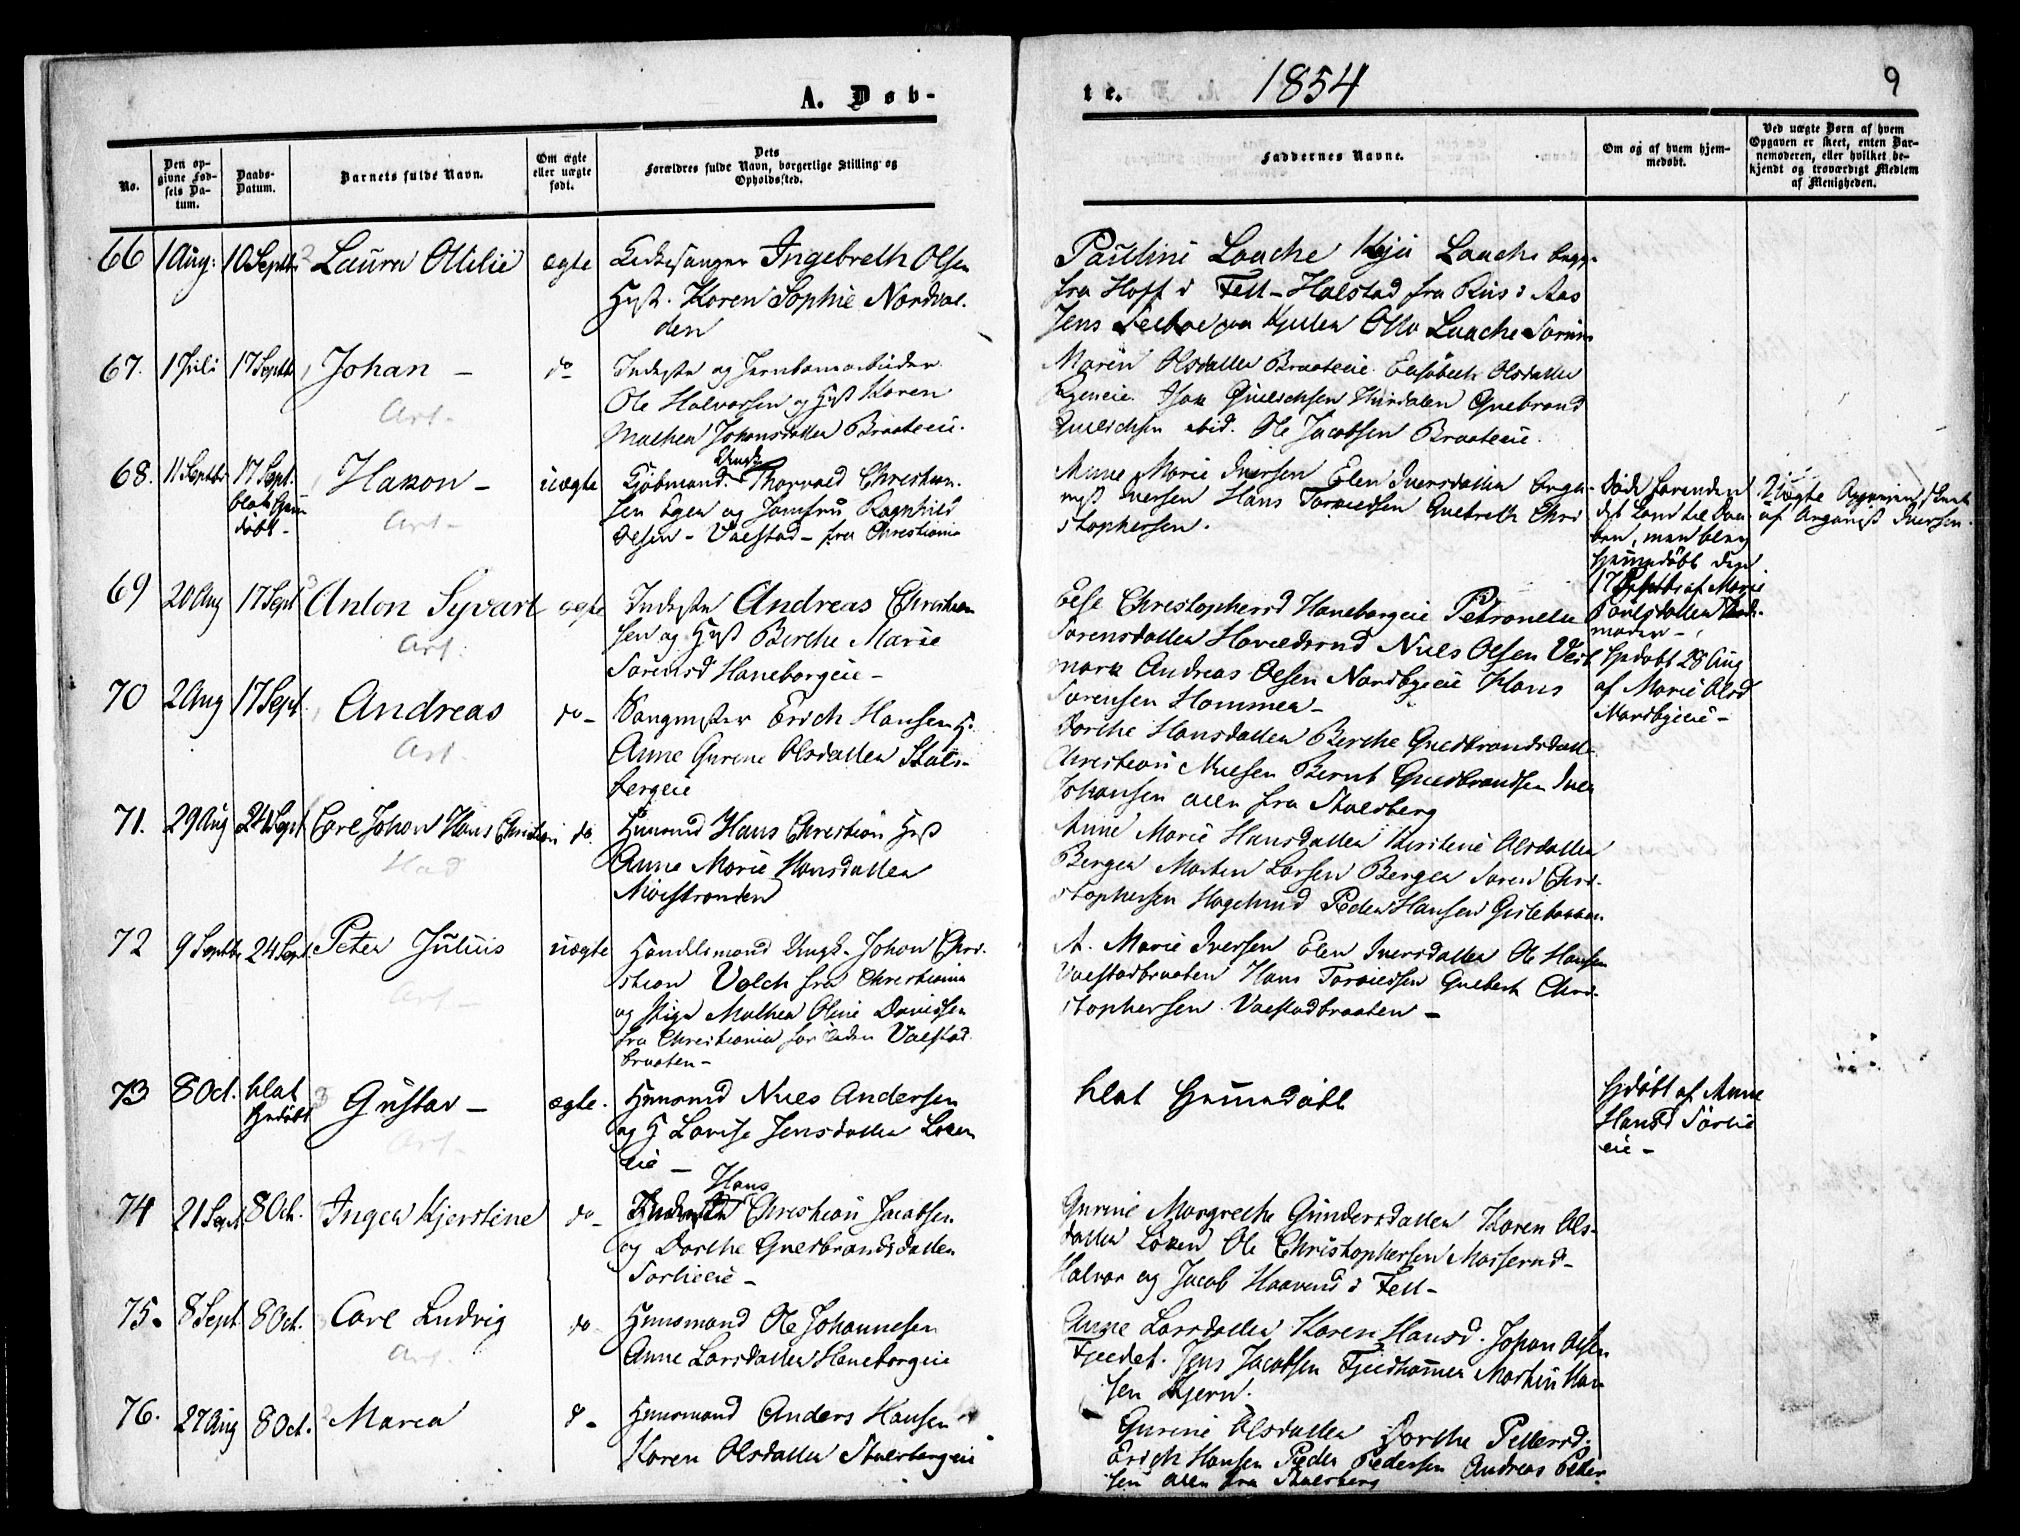 A. Døb-
te.
1854
9
No.
Den op-
givne Fød-
sels Da-
tum.
Daabs-
Datum.
Barnets fulde Navn.
Om ægte
eller uægte
født.
Dets
Forældres fulde Navn, borgerlige Stilling og
Opholdssted.
Faddernes Navne.
Om og af hvem hjem-
medøbt.
Ved uægte Børn af hvem
Opgaven er skeet, enten Bar-
nemoderen, eller hvilket be-
kjendt og troværdigt Medlem
af Menigheden.
66 1 Aug: 10 Septbr Laura Ottilie ægte Kirkesanger Ingebreth Olsen
Hust. Karen Sophie Nordval-
den
Pauline Laache Kaja Laache begge
fra Hoff i Fett - Halstad fra Riis i Aas
Jens Otto Laache
67. 1 Juli 17 Septb Johan - do Inderste og Jernbanearbeider
Art.
Ole Halvorsen og Hust Karen
Mathea Johansdatter Braateeie.
Maren Olsdatter Braateeie Elisabeth Olsdatter
Isak Gulichsen Guebrand
Gulichsen ibid. Ole Jacobsen Braateeie.
68. 11 Septbr 17 Sept. Hakon - uægte Kjøbmand Ungk. Thorvald Christian-
blot hjem-
døbt -
Art -
sen og Jomfru Ragnhild
Olsen - Valstad - fra Christiania
Anne Marie Iversen Elen Iversdatter Arga-
nust Iversen Hans Torvildsen Guebreth Chri-
stophersen.
Døde forenden
det kom til Daa-
ben, men blev
hjemmedøbt den
17 Septb af Marie
Poulsdatter Jord-
moder -
Uægte Angivelsen skeet
af Arganust Iversen.
69 20 Aug 17 Sept Anton Syvart ægte Inderste Andreas Christian-
Art.
sen og Hust Berthe Marie
Sørensd Haneborgeie -
Else Christophersd Haneborgeie Petronelle
Sørensdatter Haraldsrud Niels Olsen Vest-
mark Andreas Olsen Nordbyeie Hans
Sørensen Hammer -
Hjdøbt 28 Aug
af Marie Olsd
Nordbyeie -
70 2 Aug 17 Sept. Andreas do - Bangmester Erich Hansen H.
Art.
Anne Gurine Olsdatter Stals-
bergeie
Dorthe Hansdatter Berthe Guldbrandsdatter
Christian Nielsen Bernt Guldbrandsen Iver
Johansen alle fra Stalsberg
71. 29 Aug 24 Sept Carl Johan Hans Christian do. Huusmd Hans Christian Hust
Anne Marie Hansdatter
Moestranden
Anne Marie Hansdatter Kirstine Olsdatter
Berger Morten Larsen Berger Søren Chri-
stophersen Hagelund Peder Hansen
72 9 Septbr 24 Sept. Peter Julius uægte Handelsmand Ungk. Johan Chri-
Art -
stian Volch fra Christiania
og Pige Mathea Oline Davidsen
fra Christiania for tiden Valstad-
braaten -
A. Marie Iversen Elen Iversdatter Ole Hansen
Valstadbraaten Hans Torvildsen Guebert Chri-
stophersen Valstadbraaten -
73 8 Oct. blot
Hjdøbt Gustav - ægte. Huusmd Niels Andersen
Art -
og H Lovise Jensdatter Løken-
eie -
blot Hjemmedøbt
Hjdøbt af Anne
Hansd Sørlie
eie -
74 21 Sept 8 Oct. Inger Kjerstine do - Hans Christian Jacobsen
og Dorthe Guldbrandsdatter
Sørlieeie -
Gurine Margrethe Gundersdatter Karen Ols-
datter Løken Ole Christophersen Masserud -
Halvor og Jacob Haavend i Fett -
75. 8 Sept 8 Oct. Carl Ludvig do - Huusmand Ole Johannesen
Art.
Anne Larsdatter Haneborgeie
Anne Larsdatter Karen Hansd. Johan Olsen
Fjeldet. Jens Jacobsen Fjeldhammer Martin Han-
sen Kjern.
76. 27 Aug 8 Oct. Maren d - Huusmand Anders Hansen
Karen Olsdatter Stalsbergeie
Gurine Olsdatter Dorthe Pettersd.
Erich Hansen Peder Pedersen Andreas Peder-
sen alle fra Stalsberg